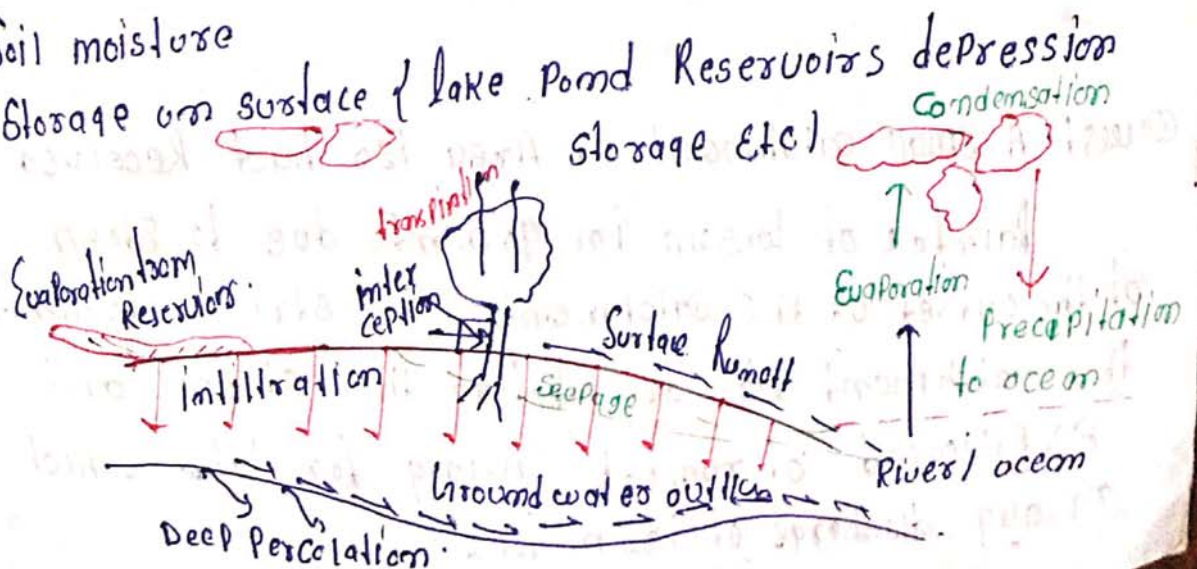 Soil moisture
Storage on surface { lake Pond Reservoirs depression
Storage Etc)
Condensation
transpiration
inter
ception
Evaporation from
Reserviors.
Evaporation
Precapitation
to ocean
Surface Runoff
infiltration
Seepage
River/ ocean
Ground water outflow
Deep Percolation.